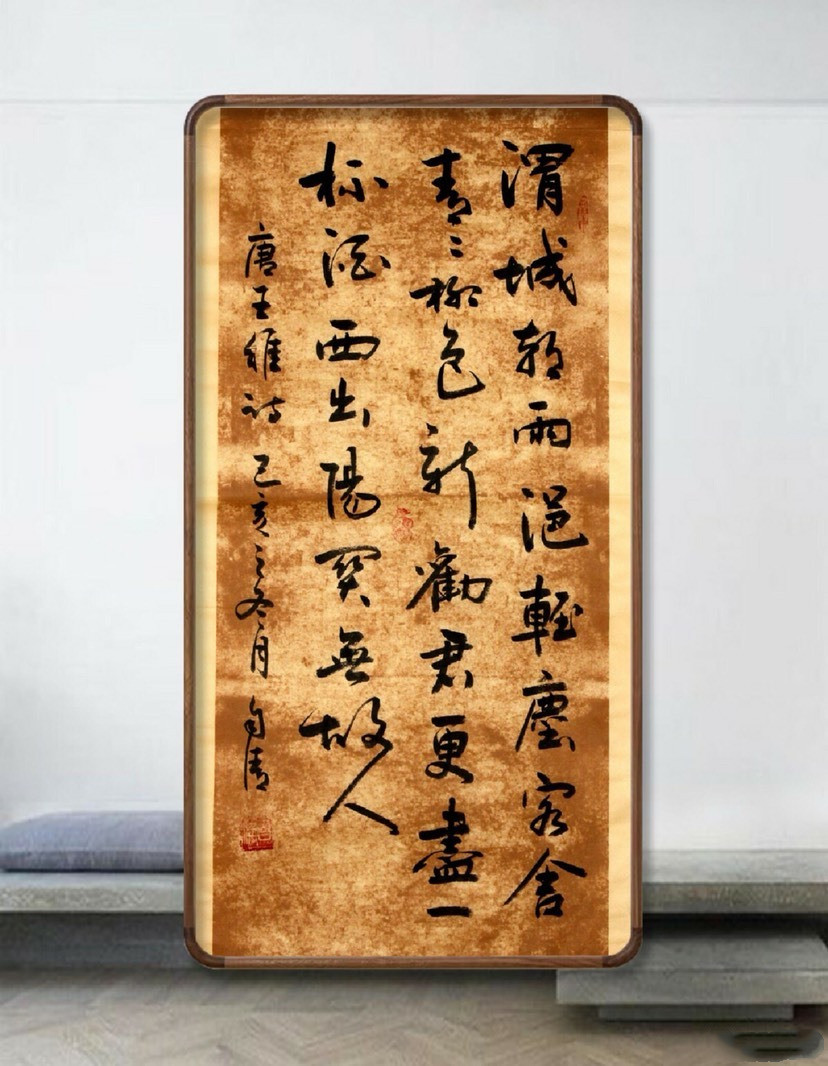 渭城朝雨浥輕塵客舍
青〻柳色新勸君更盡一
杯酒西出陽關無故人
唐王維詩 己亥之冬月